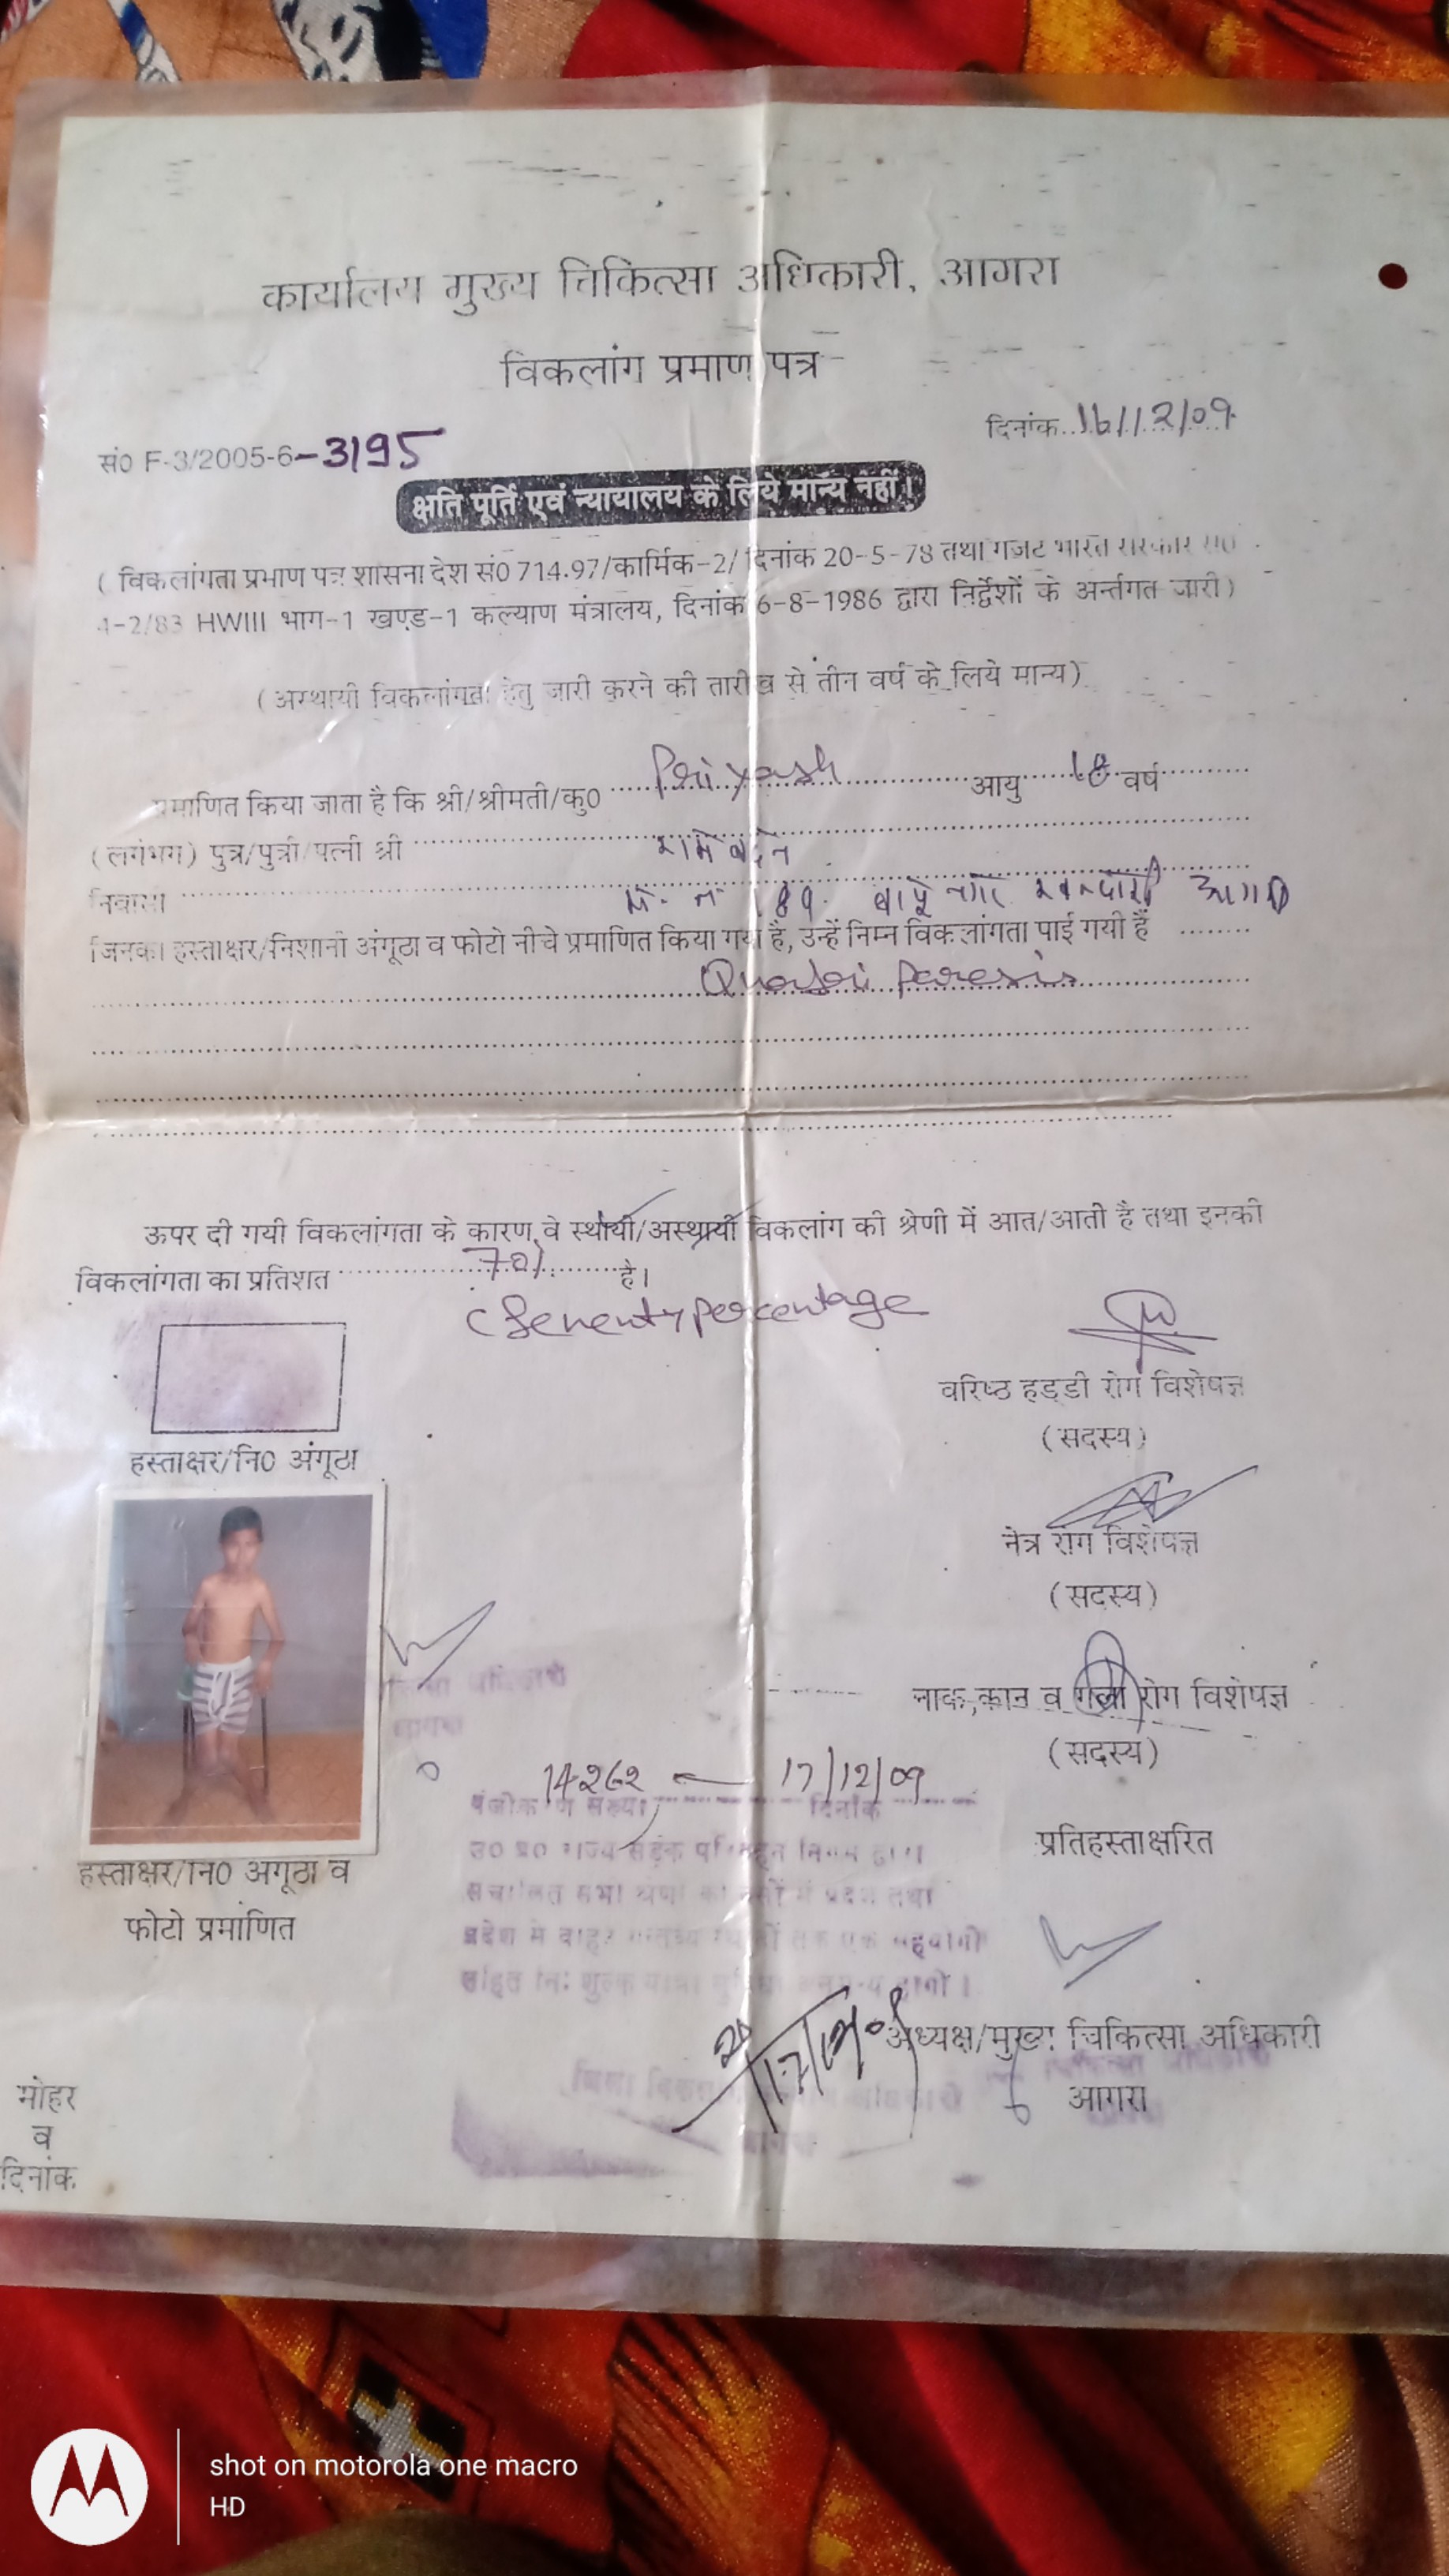 कार्यालय मुख्य चिकित्सा अधिकारी, आगरा
विकलांग प्रमाण पत्र
दिनांक 16/12/09
सं0 F-3/2005-6-3195
क्षति पूर्ति एवं न्यायालय के लिये मान्य नहीं।
( विकलांगता प्रभाण पत्र शासना देश सं0 714.97/कार्मिक-2/ दिनांक 20-5-78 तथा गजट भारत सरकार सं0
4-2/83 HWIII भाग-1 खण्ड-1 कल्याण मंत्रालय, दिनांक 6-8-1986 द्वारा निर्द्देशों के अर्न्तगत जारी)
(अस्थायी विकलांगता हेतु जारी करने की तारीख से तीन वर्ष के लिये मान्य)
प्रमाणित किया जाता है कि श्री/श्रीमती/कु0 Priyash आयु वर्ष
(लगंभग) पुत्र/पुत्री/पत्नी श्री
निवासी म. न. 189
जिनका हस्ताक्षर/निशानी अंगूठा व फोटो नीचे प्रमाणित किया गया है, उन्हें निम्न विकलांगता पाई गयी हैं
Quadri paresis
ऊपर दी गयी विकलांगता के कारण वे स्थायी/अस्थायी विकलांग की श्रेणी में आत/आती है तथा इनकी
विकलांगता का प्रतिशत 70% है।
(Seventy percentage
वरिष्ठ हड्डी रोग विशेषज्ञ
(सदस्य)
हस्ताक्षर/नि0 अंगूठा
नेत्र रोग विशेषज्ञ
(सदस्य)
नाक,कान व गला रोग विशेषज्ञ
(सदस्य)
14262 17/12/09
पंजीकरण संख्या दिनांक
उ0 प्र0 राज्य सड़क परिवहन निगम द्वारा
प्रतिहस्ताक्षरित
हस्ताक्षर/नि0 अगूठा व
फोटो प्रमाणित
अध्यक्ष/मुख्य चिकित्सा अधिकारी
आगरा
मोहर
व
दिनांक
shot on motorola one macro
HD